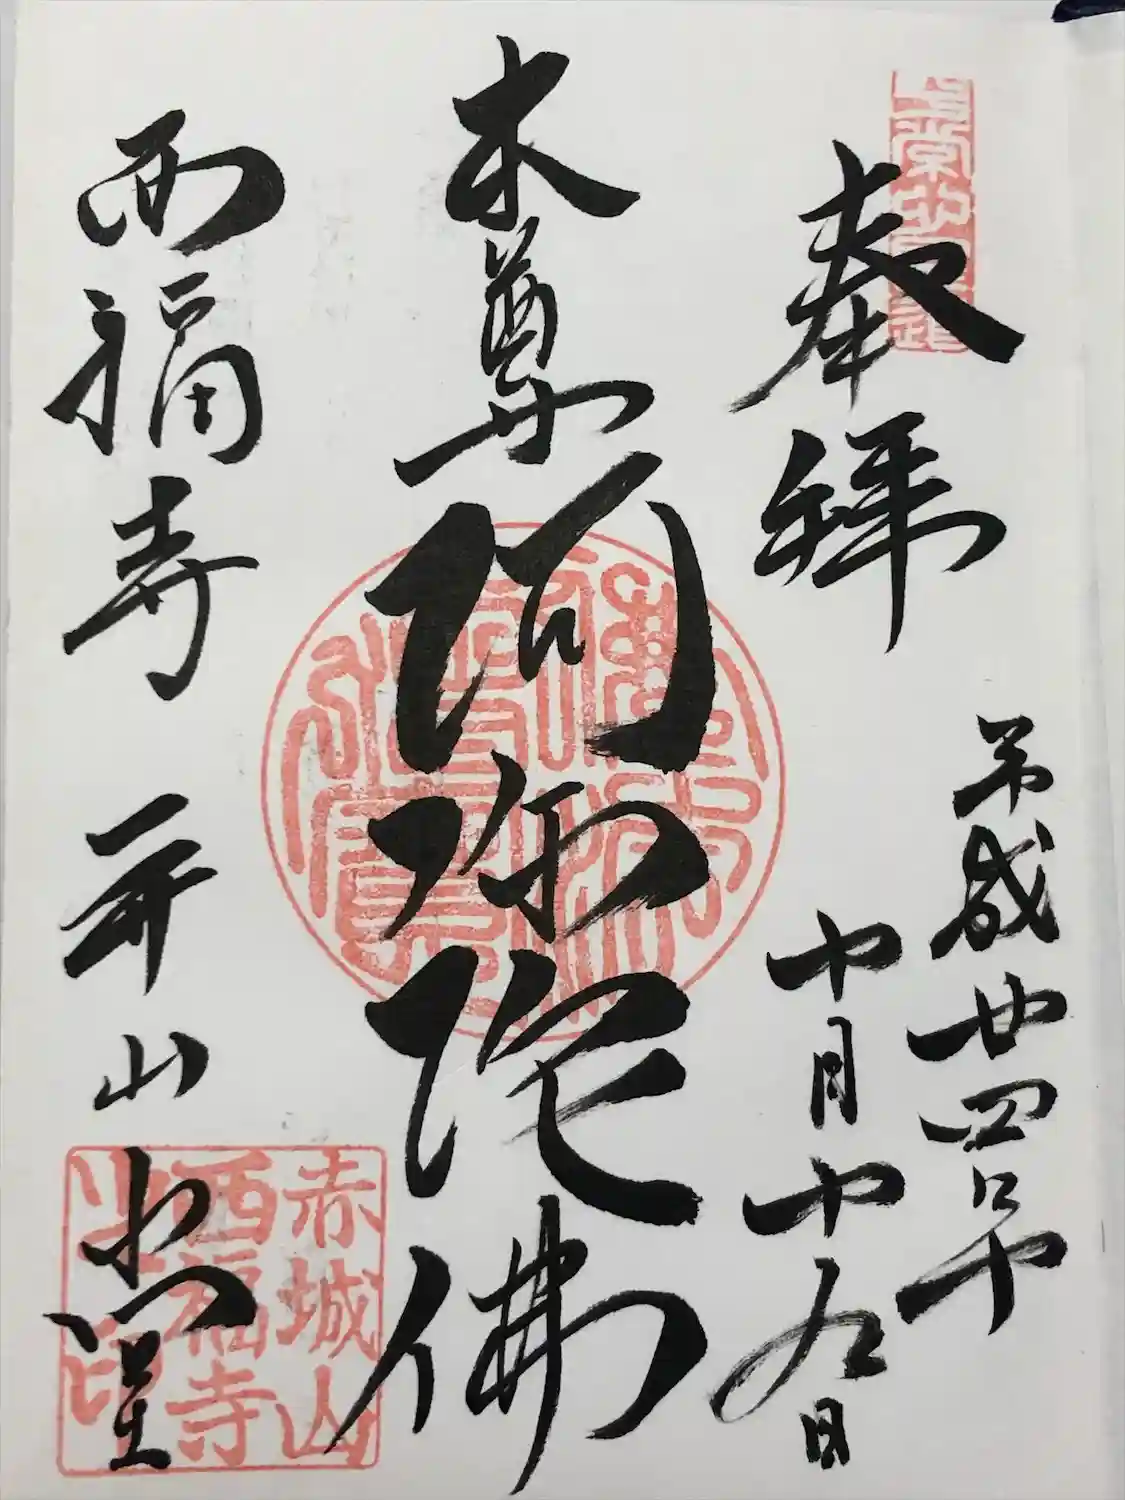 奉拝
平成廿四年
十月十九日
本尊
阿弥陀佛
西福寺
開山
赤城山
西福寺
之印